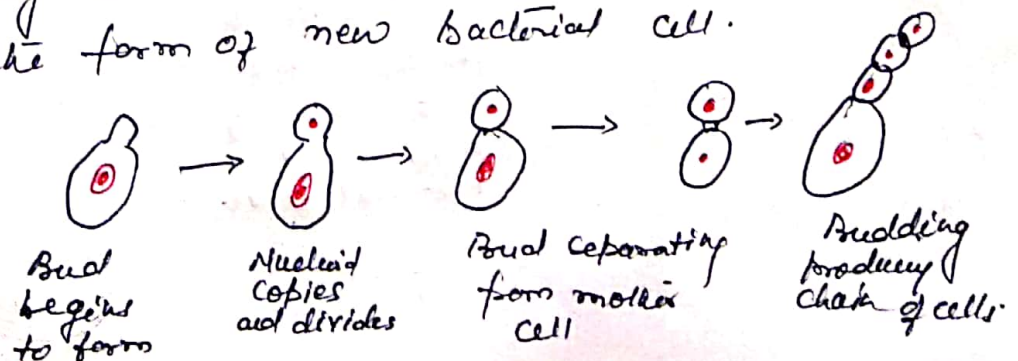 he form of new bacterial cell.
Bud
begins
to form
Nucleoid
copies
and divides
Bud ceparating
from mother
cell
Budding
producing
chain of cells.